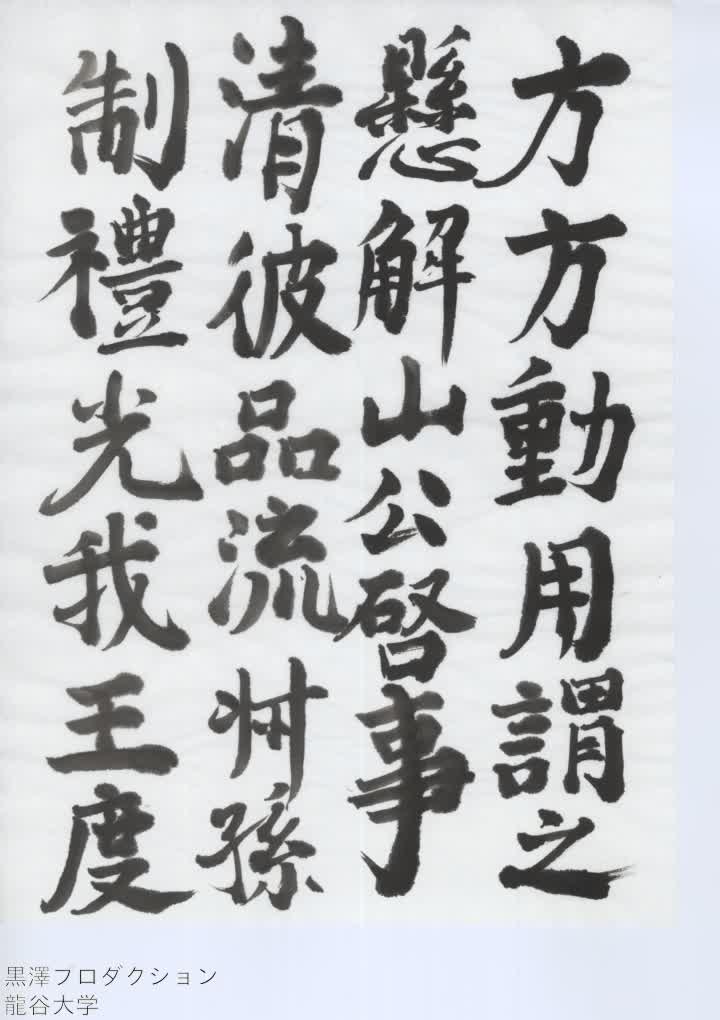 方方動用謂之
懸解山公啓事
清彼品流叔孫
制禮光我王度
黒澤プロダクション
龍谷大学